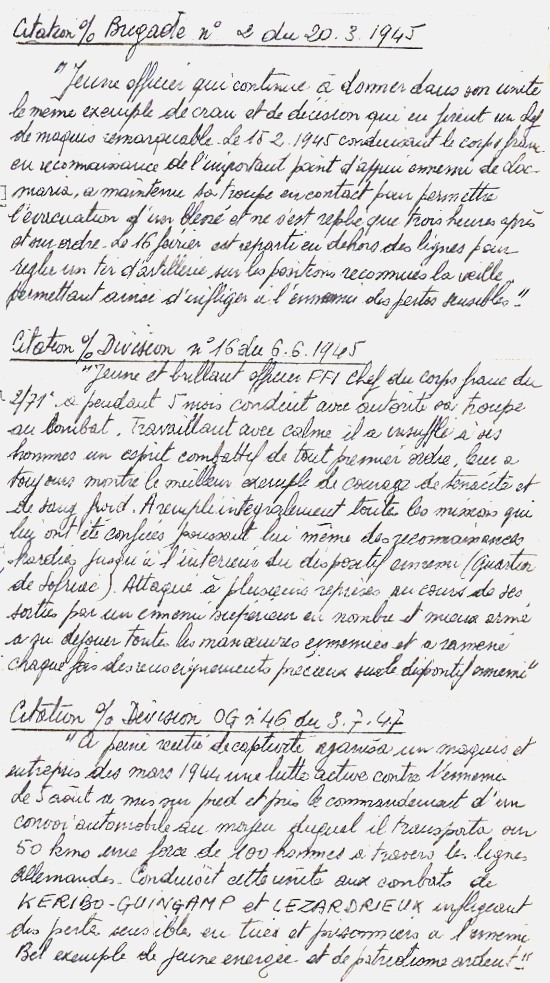 Citation % Brigade n° 2 du 20.3.1945
"Jeune officier qui continue à donner dans son unité
le même exemple de cran et de décision qui en firent un chef
de maquis remarquable. Le 15 2.1945 conduisant le corps franc
en reconnaissance de l'important point d'appui ennemi de Loc-
maria, a maintenu sa troupe en contact pour permettre
l'évacuation d'un blessé et ne s'est replié que trois heures après
et sur ordre. Le 16 février est reparti en dehors des lignes pour
régler un tir d'artillerie sur les positions reconnues la veille
permettant ainsi d'infliger à l'ennemi des pertes sensibles"
Citation % Division n° 16 du 6.6.1945
"Jeune et brillant officier FFI chef du corps franc du
2/71e a pendant 5 mois conduit avec autorité sa troupe
au combat. Travaillant avec calme il a insufflé à ses
hommes un esprit combattif de tout premier ordre, leur a
toujours montré le meilleur exemple de courage de ténacité et
de sang froid. A rempli intégralement toutes les missions qui
lui ont été confiées poussant lui même des reconnaissances
hardies jusqu'à l'intérieur du dispositif ennemi (Quartier
de Kofriac). Attaqué à plusieurs reprises au cours de ses
sorties par un ennemi supérieur en nombre et mieux armé
a su déjouer toutes les manœuvres ennemies et a ramené
chaque fois des renseignements précieux sur le dispositif ennemi"
Citation % Division OG n° 46 du 3.7.47
"A peine rentré de captivité organisa un maquis et
entrepris dès mars 1944 une lutte active contre l'ennemi
Le 5 août a mis sur pied et pris le commandement d'un
convoi automobile au moyen duquel il transporta sur
50 kms une force de 100 hommes à travers les lignes
allemandes. Conduisit cette unité aux combats de
KERIBO-GUINGAMP et LEZARDRIEUX infligeant
des pertes sensibles en tués et prisonniers à l'ennemi
Bel exemple de jeune énergie et de patriotisme ardent"